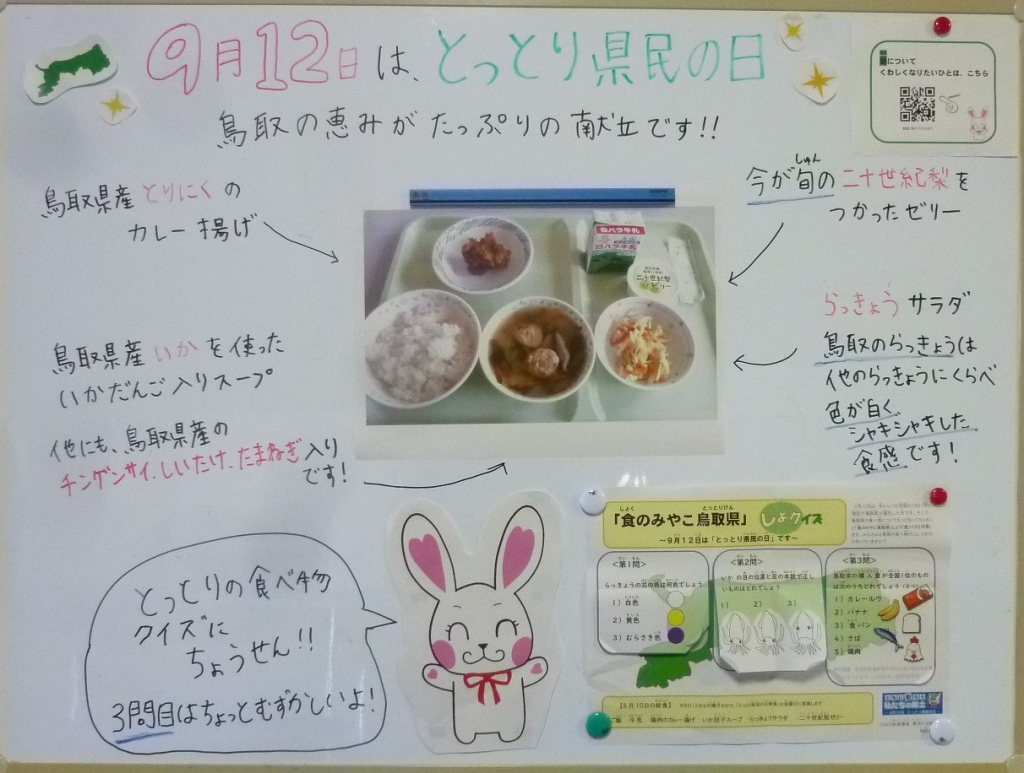 9月12日は、とっとり県民の日
鳥取の恵みがたっぷりの献立です!!
について
くわしくなりたいひとは、こちら
鳥取県産とりにくの
カレー揚げ
鳥取県産いかを使った
いかだんご入りスープ
他にも、鳥取県産の
チンゲンサイ、しいたけ、たまねぎ入り
です!
しゅん
今が旬の二十世紀梨を
つかったゼリー
らっきょうサラダ
鳥取のらっきょうは
他のらっきょうにくらべ
色が白く、
シャキシャキした
食感です!
白バラ牛乳
二十世紀梨
ゼリー
とっとりの食べ物
クイズに
ちょうせん!!
3問目はちょっとむずかしいよ!
しょく とっとりけん
「食のみやこ鳥取県」 しょクイズ
～9月12日は「とっとり県民の日」です～
<第1問>
らっきょうの花の色は何色でしょう
1）白色
2）黄色
3）むらさき色
<第2問>
いかの目の位置と足の本数で正し
いものはどれでしょう
1） 2） 3）
<第3問>
鳥取市の購入量が全国1位のものは
次のうちどれでしょう
1）カレールウ
2）バナナ
3）食パン
4）さば
5）鶏肉
ご飯 牛乳 鶏肉のカレー揚げ いか団子スープ らっきょうサラダ 二十世紀梨ゼリー
私たちの郷土